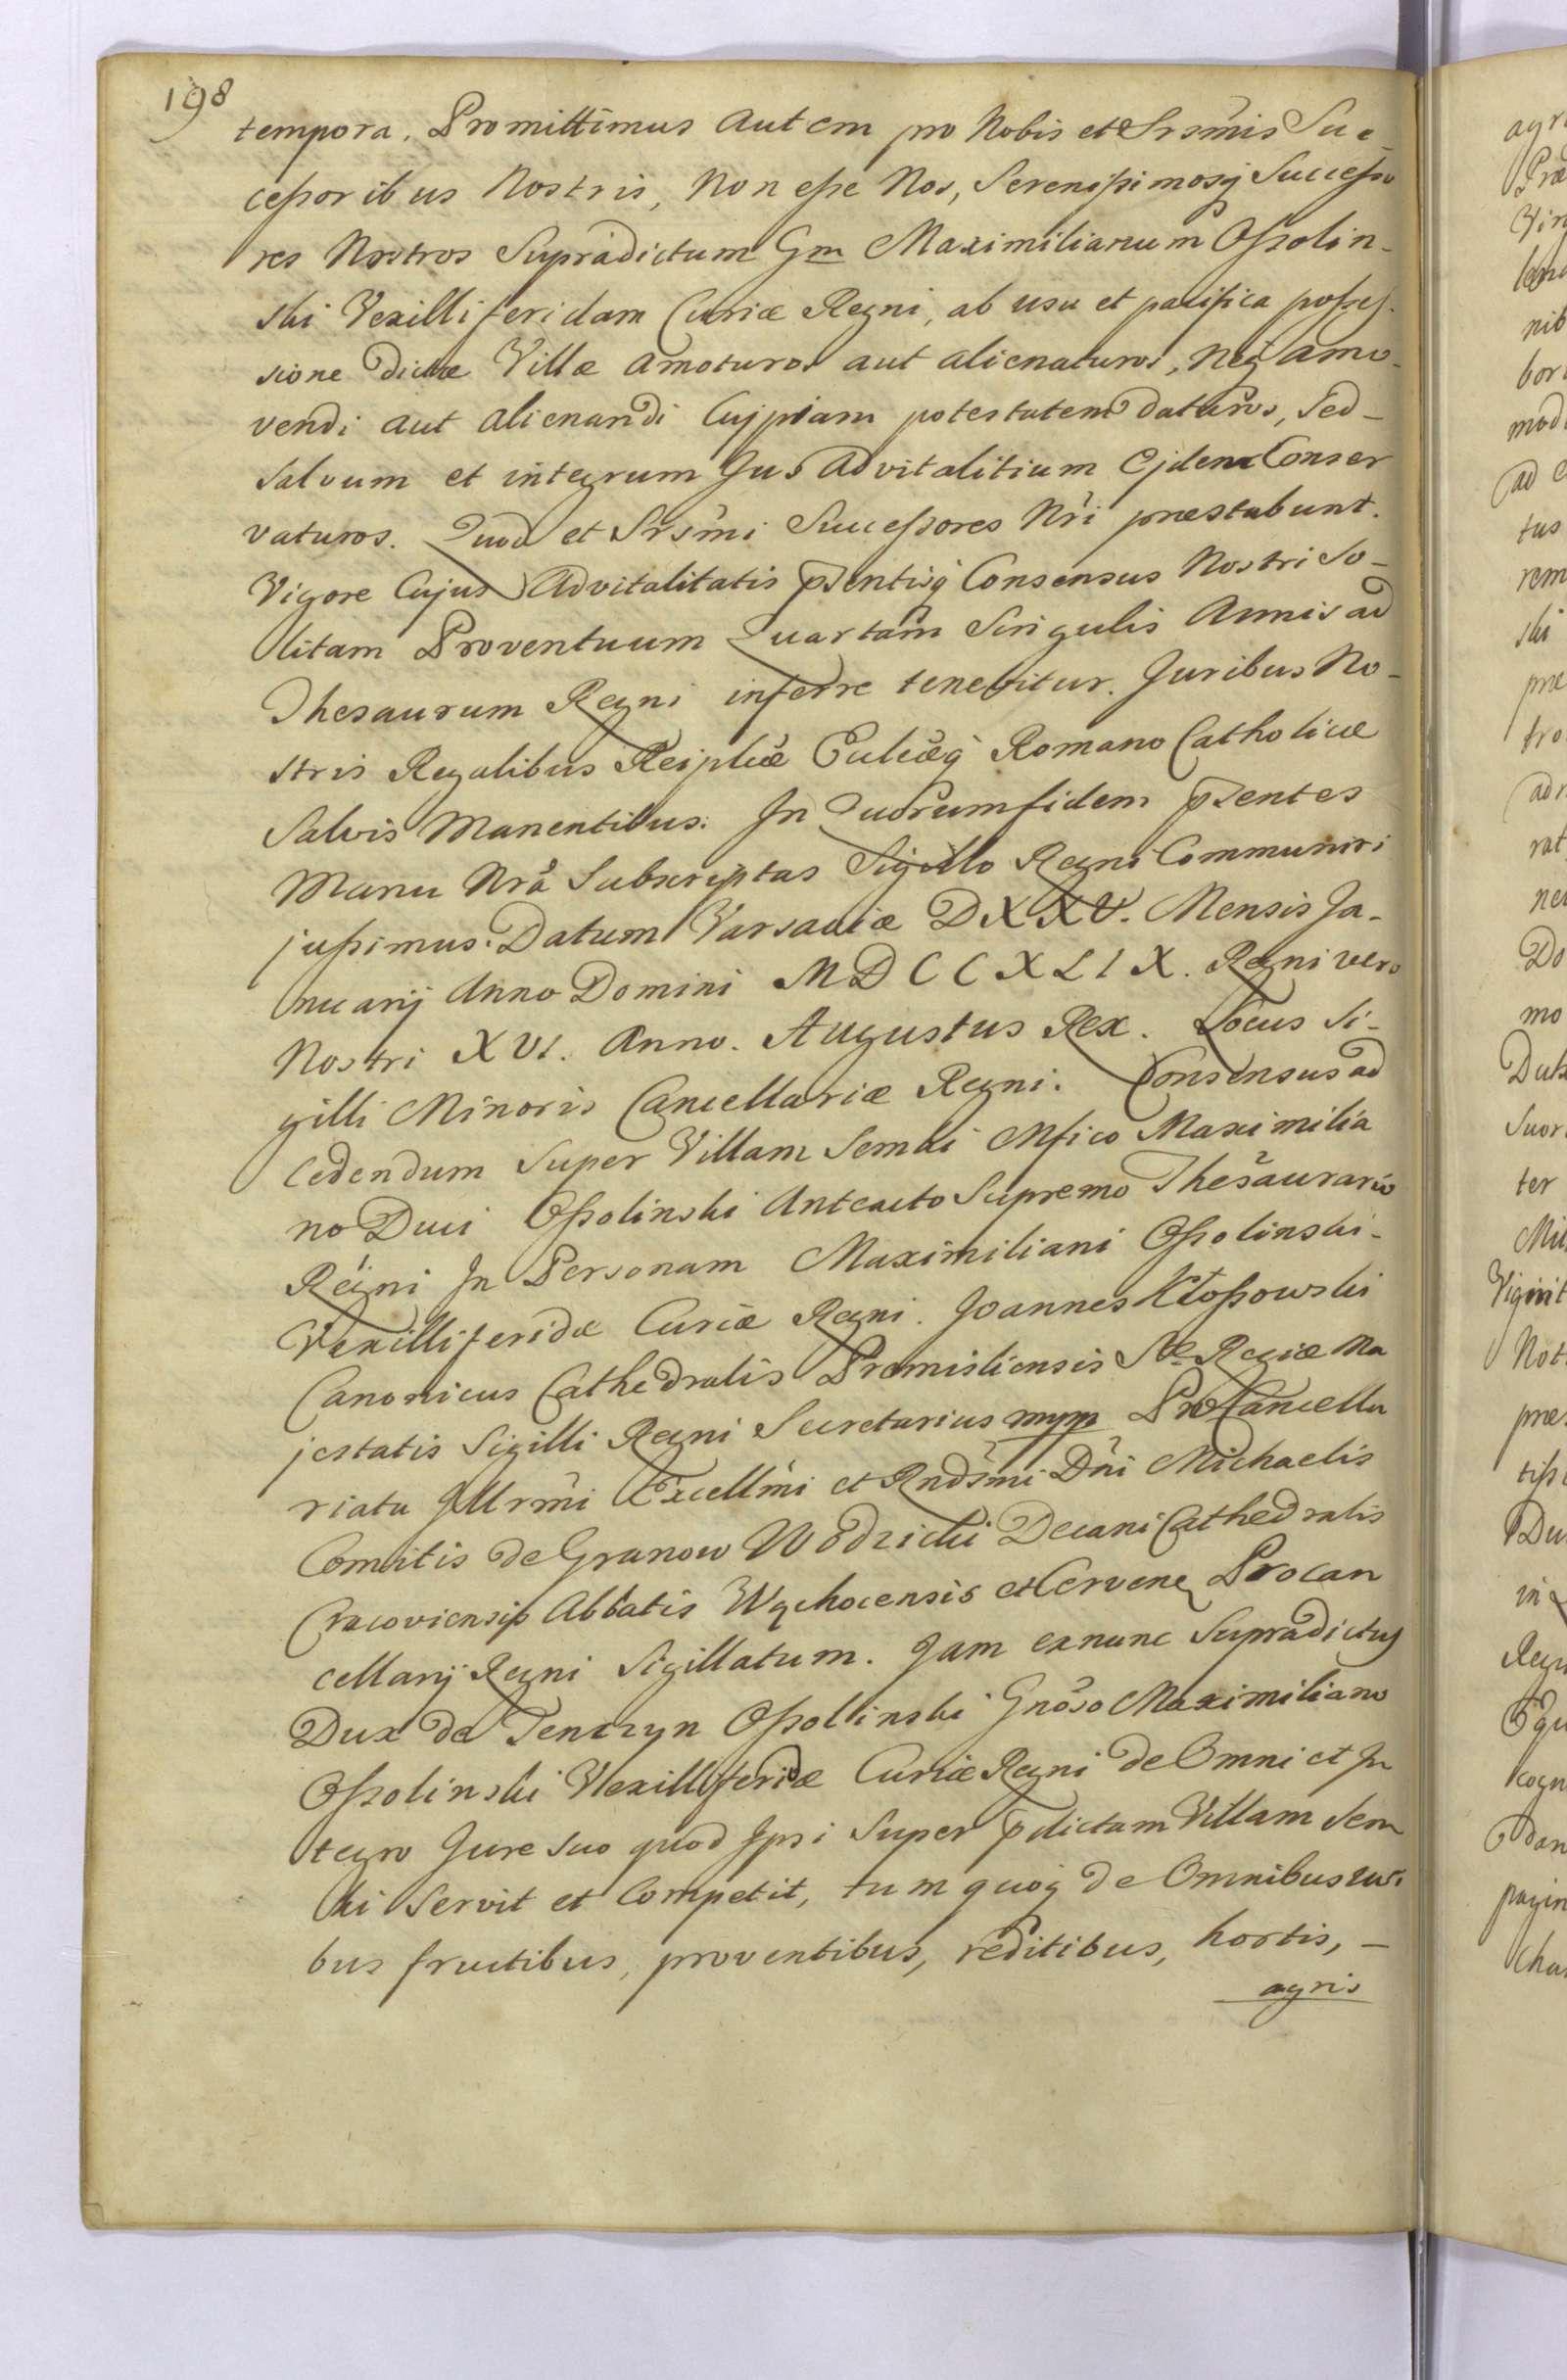 198
tempora. Promittimus autem pro Nobis et Srsmis Suc-
cessoribus Nostris, Non esse Nos, Serenissimosq Successo
res Nostros Supradictum Gm Maximilianum Ossolin-
ski Vexilliferidam Curiæ Regni, ab usu et pacifica posses-
sione dictæ Villæ amoturos aut alienaturos, neq amo-
vendi aut alienandi Cujpiam potestatem daturos, Sed-
Salvum et integrum Jus Advitalitium Ejdem Conser
vaturos. Quod et Srsmi Successores Nri præstabunt.
Vigore Cujus Advitalitatis psentisq Consensus Nostri So-
litam Proventuum Quartam Singulis Annis ad
Thesaurum Regni inferre tenebitur. Juribus No-
stris Regalibus Reiplicæ Ecclæq Romano Catholicæ
Salvis Manentibus. In Quorum fidem psentes
Manu Nra Subscriptas Sigillo Regni Communiri
jussimus. Datum Varsaviæ D XXV. Mensis Ja-
nuarij Anno Domini MDCCXLIX. Regni vero
Nostri XVI. Anno. Augustus Rex. Locus Si-
gilli Minoris Cancellariæ Regni. Consensus ad
Cedendum Super Villam Semki Mfico Maximilia
no Duci Ossolinski Anteacto Supremo Thesaurario
Regni In Personam Maximiliani Ossolinski-
Vexilliferidæ Curiæ Regni. Joannes Kłossowski
Canonicus Cathedralis Premisliensis Sæ Regiæ Ma
jestatis Sigilli Regni Secretarius mpp Pro Cancella
riatu Illrmi Excellmi et Rndsmi Dni Michaelis
Comitis de Granow Wodzicki Decani Cathedralis
Cracoviensis Abbatis Wąchocensis et Cervenę Procan
cellarij Regni Sigillatum. Jam exnunc Supradictus
Dux de Tenczyn Ossolinski Gnoso Maximiliano
Ossolinski Vexilliferidæ Curiæ Regni de Omni et In
tegro Jure suo quod Ipsi Super pdictam Villam Sem
ki Servit et Competit, tum quoq de Omnibus usi
bus fructibus, proventibus, reditibus, hortis, -
agris